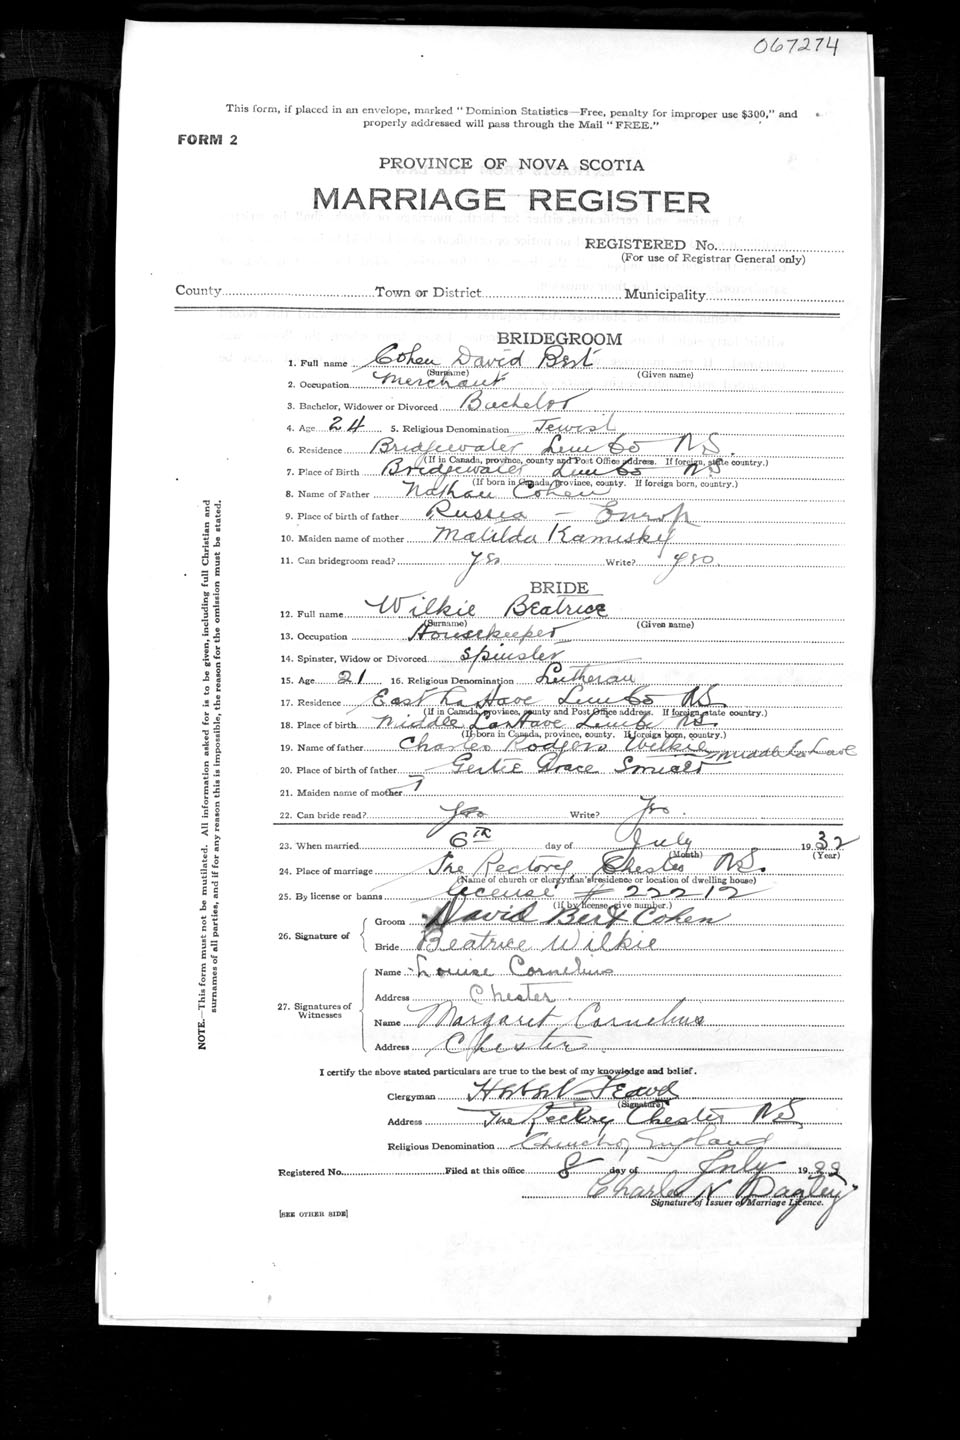 067274
This form, if placed in an envelope, marked "Dominion Statistics—Free, penalty for improper use $300," and
properly addressed will pass through the Mail "FREE."
FORM 2
PROVINCE OF NOVA SCOTIA
MARRIAGE REGISTER
REGISTERED No.
(For use of Registrar General only)
County Town or District Municipality
BRIDEGROOM
1. Full name Cohen David Bert
(Surname) (Given name)
2. Occupation Merchant
3. Bachelor, Widower or Divorced Bachelor
4. Age 24 5. Religious Denomination Jewish
6. Residence Bridgewater Lun Co N.S.
(If in Canada, province, county and Post Office address. If foreign, state country.)
7. Place of Birth Bridgewater Lun Co N S
(If born in Canada, province, county. If foreign born, country.)
8. Name of Father Nathan Cohen
9. Place of birth of father Russia — Europ
10. Maiden name of mother Matilda Kamisky
11. Can bridegroom read? yes Write? yes
BRIDE
12. Full name Wilkie Beatrice
(Surname) (Given name)
13. Occupation Housekeeper
14. Spinster, Widow or Divorced Spinster
15. Age 21 16. Religious Denomination Lutheran
17. Residence East LaHave Lun Co N.S.
(If in Canada, province, county and Post Office address. If foreign, state country.)
18. Place of birth Middle LaHave Lun Co N.S.
(If born in Canada, province, county. If foreign born, country.)
19. Name of father Charles Rodgers Wilkie Middle LaHave
20. Place of birth of father Gertie Grace
21. Maiden name of mother
22. Can bride read? Yes Write? Yes.
23. When married 6TH day of July 1932
(Month) (Year)
24. Place of marriage The Rectory, Chester N.S.
(Name of church or clergyman's residence or location of dwelling house)
25. By license or banns license # 22212
(If by license, give number.)
26. Signature of
Groom David Bert Cohen
Bride Beatrice Wilkie
27. Signatures of Witnesses
Name Louise Cornelius
Address Chester
Name Margaret Cornelius
Address Chester
I certify the above stated particulars are true to the best of my knowledge and belief.
Clergyman
(Signature)
Address The Rectory Chester N.S.
Religious Denomination Church of England
Registered No. Filed at this office 8 day of July 1932
Charles N Dagley
Signature of Issuer of Marriage Licence.
[SEE OTHER SIDE]
NOTE.—This form must not be mutilated. All information asked for is to be given, including full Christian and
surnames of all parties, and if for any reason this is impossible, the reason for the omission must be stated.